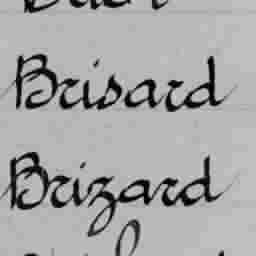 Brisard
Brizard